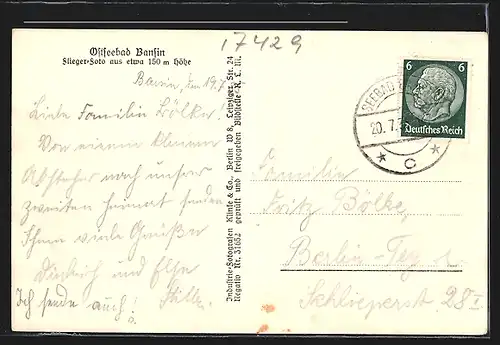 17429
Ostseebad Bansin
Flieger-Foto aus etwa 150 m Höhe
Bansin, den 19.7.
Liebe Familie Bölke!
Von einem kleinen
Abstecher nach unserer
zweiten Heimat senden
Ihnen viele Grüße
Dietrich und Else
Ich sende auch!
Industrie-Fotografen Klinke & Co., Berlin W 8, Leipziger Str. 24
Negativ Nr. 31652 geprüft und freigegeben
R. L. M.
6 6
Deutsches Reich
SEEBAD
20. 7. 3
* C *
Familie
Fritz Bölke,
Berlin-Teg
Schlieperstr. 28 I